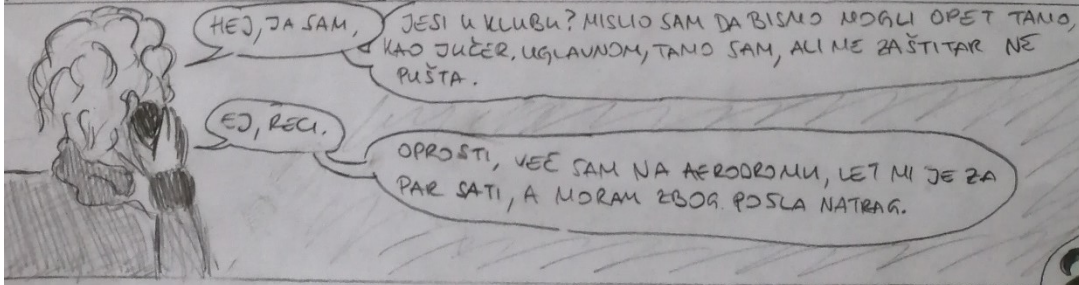 HEJ, JA SAM,
JESI U KLUBU? MISLIO SAM DA BISMO MOGLI OPET TAMO,
KAO JUČER. UGLAVNOM, TAMO SAM, ALI ME ZAŠTITAR NE
PUŠTA.
EJ, RECI.
OPROSTI, VEĆ SAM NA AERODROMU, LET MI JE ZA
PAR SATI, A MORAM ZBOG POSLA NATRAG.